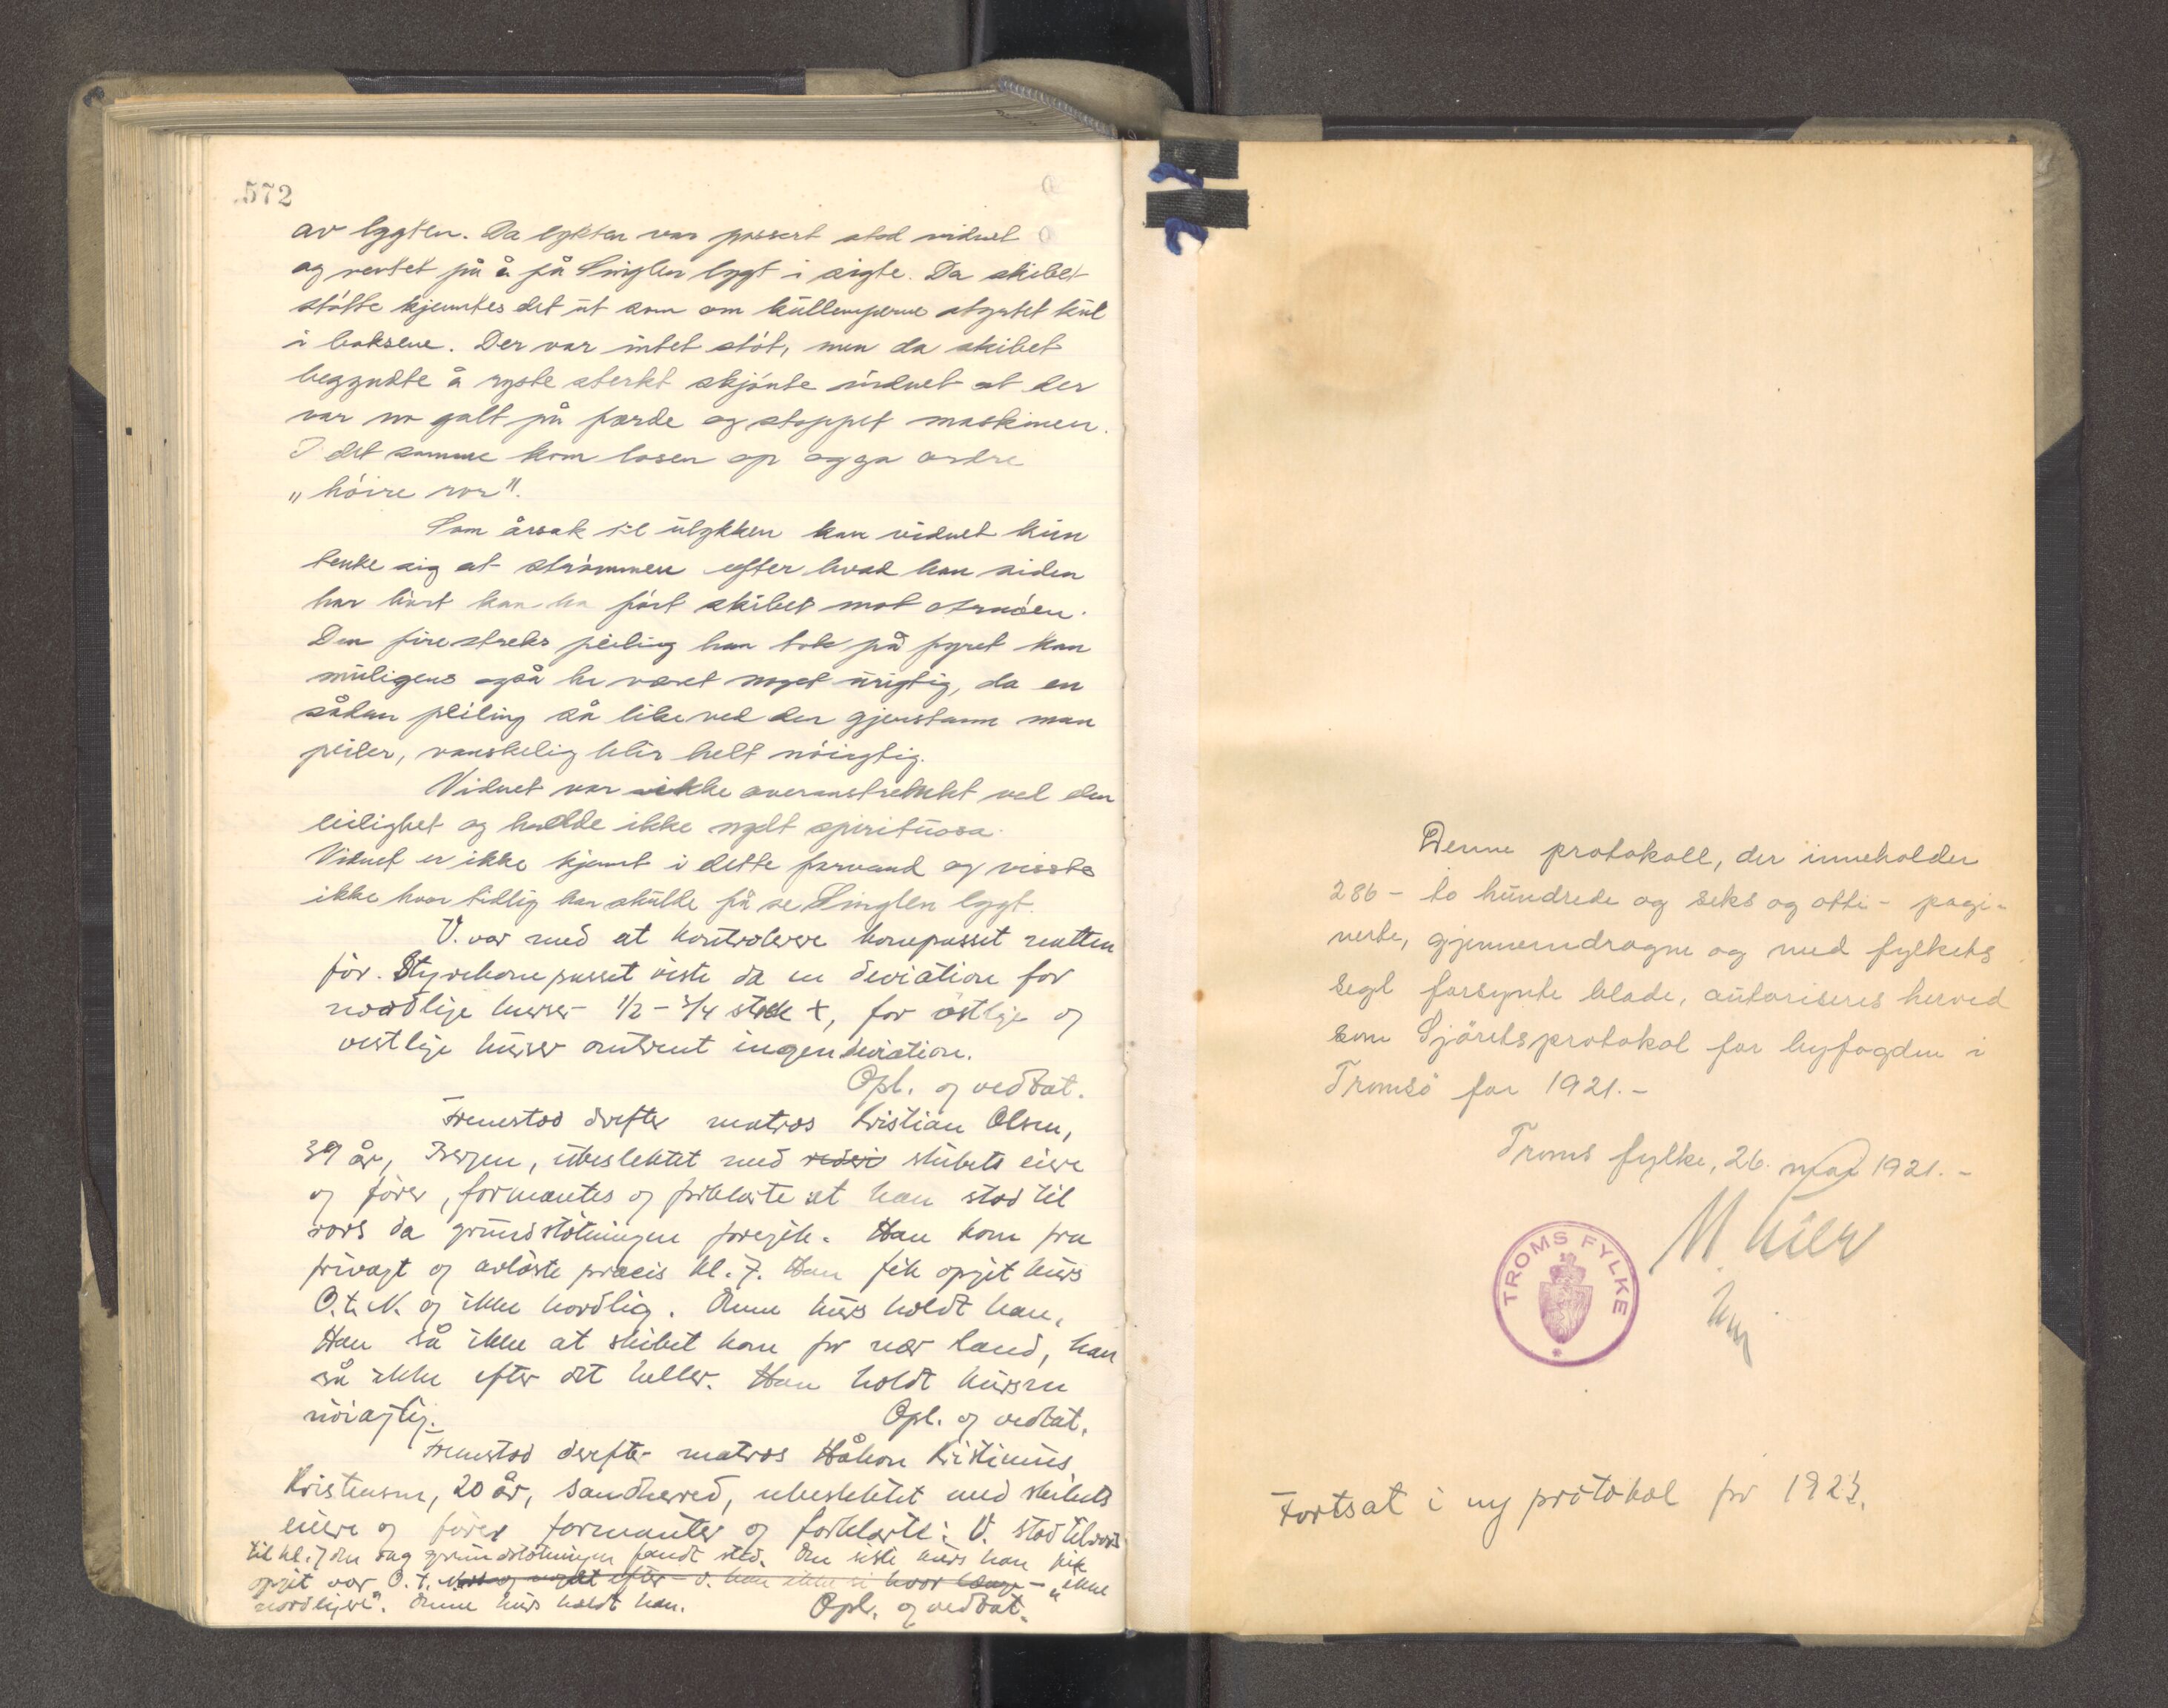 572
av lygten. Da lykten var passert stod vidnet
og ventet på å få Singlen lygt i sigte. Da skibet
stötte kjentes det ut som om kullemperne styrtet kul
i boksene. Der var intet stöt, men da skibet
begyndte å ryste sterkt skjönte vidnet at der
var no galt på færde og stoppet maskinen.
I det samme kom losen op og ga ordre
„höire ror".
Som årsak til ulykken kan vidnet kun
tenke sig at strömmen efter hvad han siden
har hört kan ha fört skibet mot Arnöen.
Den fire streks peiling han tok på fyret kan
muligens også ha været noget urigtig, da en
sådan peiling så like ved den gjenstann man
peiler, vanskelig blir helt nöiagtig.
Vidnet var ikke overanstrengt ved den
leilighet og hadde ikke nydt spirituosa.
Vidnet er ikke kjent i dette farvand og visste
ikke hvor tidlig han skulde få se Singlen lygt.
V. var med at kontrolere kompasset natten
för. Styrekompasset viste da en deviation for
nordlige kurser 1/2 - 3/4 strek +, for östlige og
vestlige kurser omtrent ingen deviation.
Opl. og vedtat.
Fremstod derefter matros Kristian Olsen,
39 år, Bergen, ubeslektet med rederi skibets eiere
og förer, formantes og forklarte at han stod til
rors da grundstötningen foregik. Han kom fra
frivagt og avlöste præcis kl. 7. Han fik opgit kurs
O.t.N. og ikke nordlig. Denne kurs holdt han.
Han så ikke at skibet kom for nær land, han
så ikke efter det heller. Han holdt kursen
nöiagtig.
Opl. og vedtat.
Fremstod derefter matros Håkon Kristinius
Kristensen, 20 år, Sandherred, ubeslektet med skibets
eiere og förer formantes og forklarte: V. stod tilrors
til kl. 7 den dag grundstötningen fandt sted. Den siste kurs han fik
opgit var O.t.N. og noget efter - v. kan ikke si hvor længe - „ikke
nordligere". Denne kurs holdt han. Opl. og vedtat.
Denne protokoll, der inneholder
286 - to hundrede og seks og otti - pagi-
nerte, gjennemdragne og med fylkets
segl forsynte blade, autoriseres herved
som Sjöretsprotokol for byfogden i
Tromsö for 1921.-
Troms fylke, 26. mai 1921.-
TROMS FYLKE
Fortsat i ny protokol for 1923.